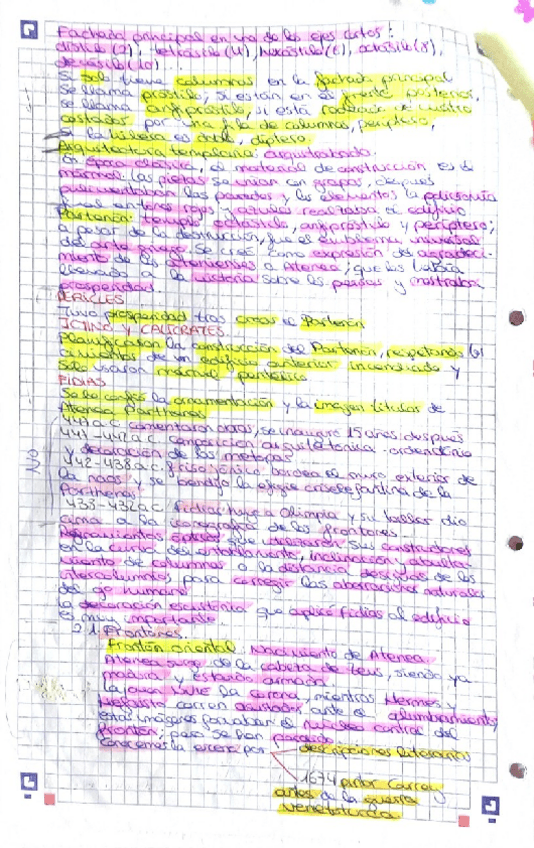 Fachada principal en uno de los ejes cortos:
dístilo (2), tetrástilo (4), hexástilo (6), octástilo (8),
decástilo (10)...
Si solo tiene columnas en la fachada principal
se llama próstilo; si están en es parte posterior,
se llama anfipróstilo, si está rodeada de cuatro
costados por una fila de columnas, períptero,
si la hilera es doble, díptero.
Arquitectura templaria: arquitrabada.
En época clásica, el material de construcción es el
mármol. Las piezas se unían con grapas, después
pulimentaban las paredes y los elementos la policromía
tonos rojos y azules realzaba el edificio
Partenón: templo octástilo, anfipróstilo y períptero;
a pesar de la destrucción, fue el universal
del arte griego. Se creó como expresión del agradeci-
miento de los atenienses a Atenea, que los había
llevado a la victoria sobre los persas y mostraba
prosperidad.
PERICLES
Tuvo prosperidad tras crear el Partenón
ICTINO Y CALÍCRATES
Planificaron la construcción del Partenón, respetando los
cimientos de un edificio anterior incendiado y
solo usaron mármol pentélico
FIDIAS
Se le confió la ornamentación y la imagen titulas de
Atenea Parthenos
447 a.c. comenzaron obras, se inauguró 15 años después
447-442 a.c. composición arquitectónica - orden dórico
y decoración de las metopas
442-438 a.c. friso jónico bordea el muro exterior de
la naos, y se bendijo la efigie criselefantina de la
Parthenos.
438-432 a.c. Fidias huye a Olimpia y su taller dio
cima a la iconografía de los frontones.
Refinamientos ópticos que utilizaron sus constructores
en la curva del entablamento, inclinación y abulta-
miento de columnas o la distancia desigual de los
intercolumnios para corregir las aberraciones naturales
del ojo humano
La decoración escultórica que aplicó Fidias al edificio
es muy importante
2.1. Frontones.
Frontón oriental. Nacimiento de Atenea.
Atenea surge de la cabeza de Zeus, siendo ya
madura y estando armada.
La sube la corona, mientras Hermes y
Hefaisto corren asustados ante el alumbramiento,
estas imágenes formaban el núcleo central del
frontón; pero se han perdido.
Conocemos la escena por descripciones literarias
1674 pintor Carrey
antes de la guerra
veneto-turca